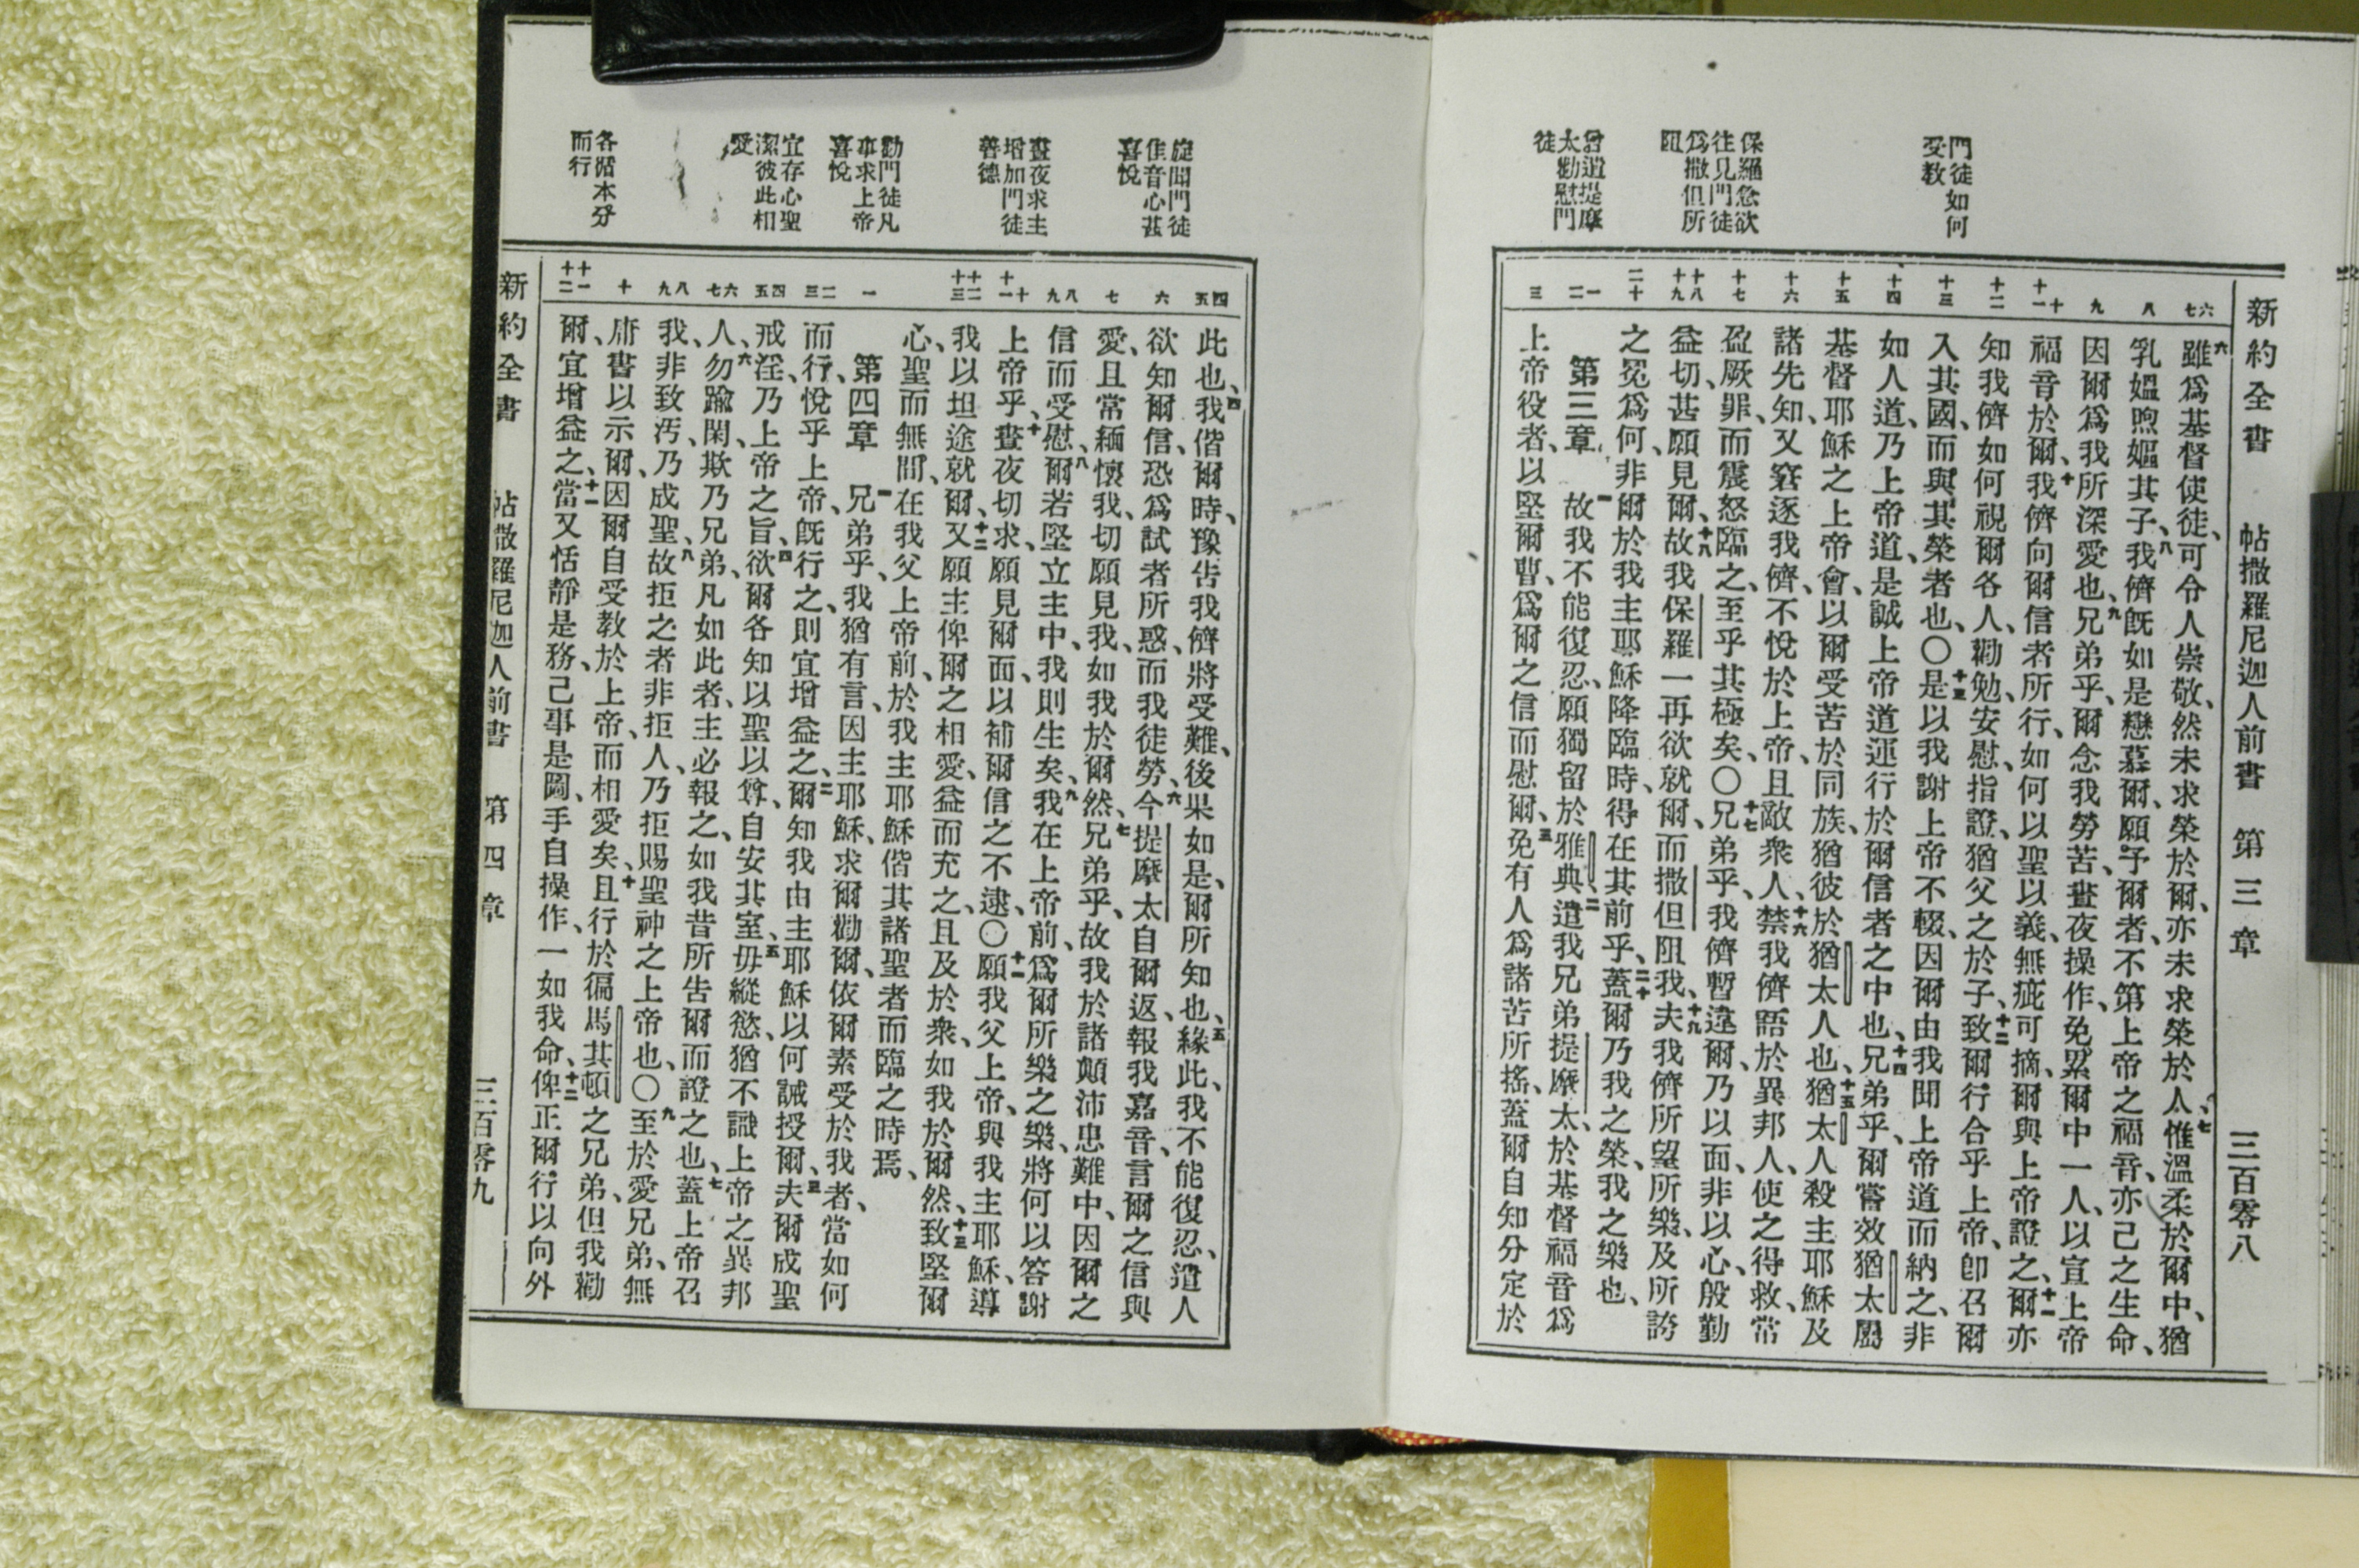 新約全書 帖撒羅尼迦人前書 第三章 三百零八
門徒如何
受教
保羅急欲
往見門徒
爲撒但所
阻
曾遣提摩
太勸慰門
徒
六七
八
九
十十一
十二
十三
十四
十五
十六
十七
十八十九
二十
一二
三
六雖爲基督使徒、可令人崇敬、然未求榮於爾、亦未求榮於人、七惟溫柔於爾中、猶
乳媼煦嫗其子、八我儕旣如是戀慕爾、願予爾者、不第上帝之福音、亦己之生命、
因爾爲我所深愛也、九兄弟乎、爾念我勞苦、晝夜操作、免累爾中一人、以宣上帝
福音於爾、十我儕向爾信者所行、如何以聖以義、無疵可摘、爾與上帝證之、十一爾亦
知我儕如何視爾各人、勸勉、安慰、指證、猶父之於子、十二致爾行合乎上帝、卽召爾
入其國、而與其榮者也、〇十三是以我謝上帝不輟、因爾由我聞上帝道而納之、非
如人道、乃上帝道、是誠上帝道運行於爾信者之中也、十四兄弟乎、爾嘗效猶太屬
基督耶穌之上帝會、以爾受苦於同族、猶彼於猶太人也、十五猶太人殺主耶穌及
諸先知、又窘逐我儕、不悅於上帝、且敵衆人、十六禁我儕語於異邦人、使之得救、常
盈厥罪、而震怒臨之、至乎其極矣、〇十七兄弟乎、我儕暫違爾、乃以面、非以心、殷勤
益切、甚願見爾、十八故我保羅一再欲就爾、而撒但阻我、十九夫我儕所望、所樂、及所誇
之冕爲何、非爾於我主耶穌降臨時、得在其前乎、二十蓋爾乃我之榮、我之樂也、
第三章 一故我不能復忍、願獨留於雅典、二遣我兄弟提摩太、於基督福音爲
上帝役者、以堅爾曹、爲爾之信而慰爾、三免有人爲諸苦所搖、蓋爾自知分定於
旋聞門徒
佳音心甚
喜悅
晝夜求主
增加門徒
善德
勸門徒凡
事求上帝
喜悅
宜存心聖
潔彼此相
愛
各循本分
而行
四五
六
七
八九
十十一
十二十三
一
二三
四五
六七
八九
十
十一十二
此也、四我偕爾時、豫告我儕將受難、後果如是、爾所知也、五緣此、我不能復忍、遣人
欲知爾信、恐爲試者所惑、而我徒勞、六今提摩太自爾返、報我嘉音、言爾之信與
愛、且常緬懷我、切願見我、如我於爾然、七兄弟乎、故我於諸顛沛患難中、因爾之
信而受慰、八爾若堅立主中、我則生矣、九我在上帝前、爲爾所樂之樂、將何以答謝
上帝乎、十晝夜切求、願見爾面、以補爾信之不逮、〇十一願我父上帝、與我主耶穌、導
我以坦途就爾、十二又願主俾爾之相愛、益而充之、且及於衆、如我於爾然、十三致堅爾
心、聖而無間、在我父上帝前、於我主耶穌偕其諸聖者而臨之時焉、
第四章 一兄弟乎、我猶有言、因主耶穌、求爾勸爾、依爾素受於我者、當如何
而行、悅乎上帝、旣行之、則宜增益之、二爾知我由主耶穌以何誡授爾、三夫爾成聖
戒淫、乃上帝之旨、四欲爾各知以聖以尊、自安其室、五毋縱慾、猶不識上帝之異邦
人、六勿踰閑、欺乃兄弟、凡如此者、主必報之、如我昔所告爾而證之也、七蓋上帝召
我、非致汚、乃成聖、八故拒之者、非拒人、乃拒賜聖神之上帝也、〇九至於愛兄弟、無
庸書以示爾、因爾自受教於上帝、而相愛矣、十且行於徧馬其頓之兄弟、但我勸
爾、宜增益之、十一當又恬靜是務、己事是圖、手自操作、一如我命、十二俾正爾行以向外
新約全書 帖撒羅尼迦人前書 第四章 三百零九